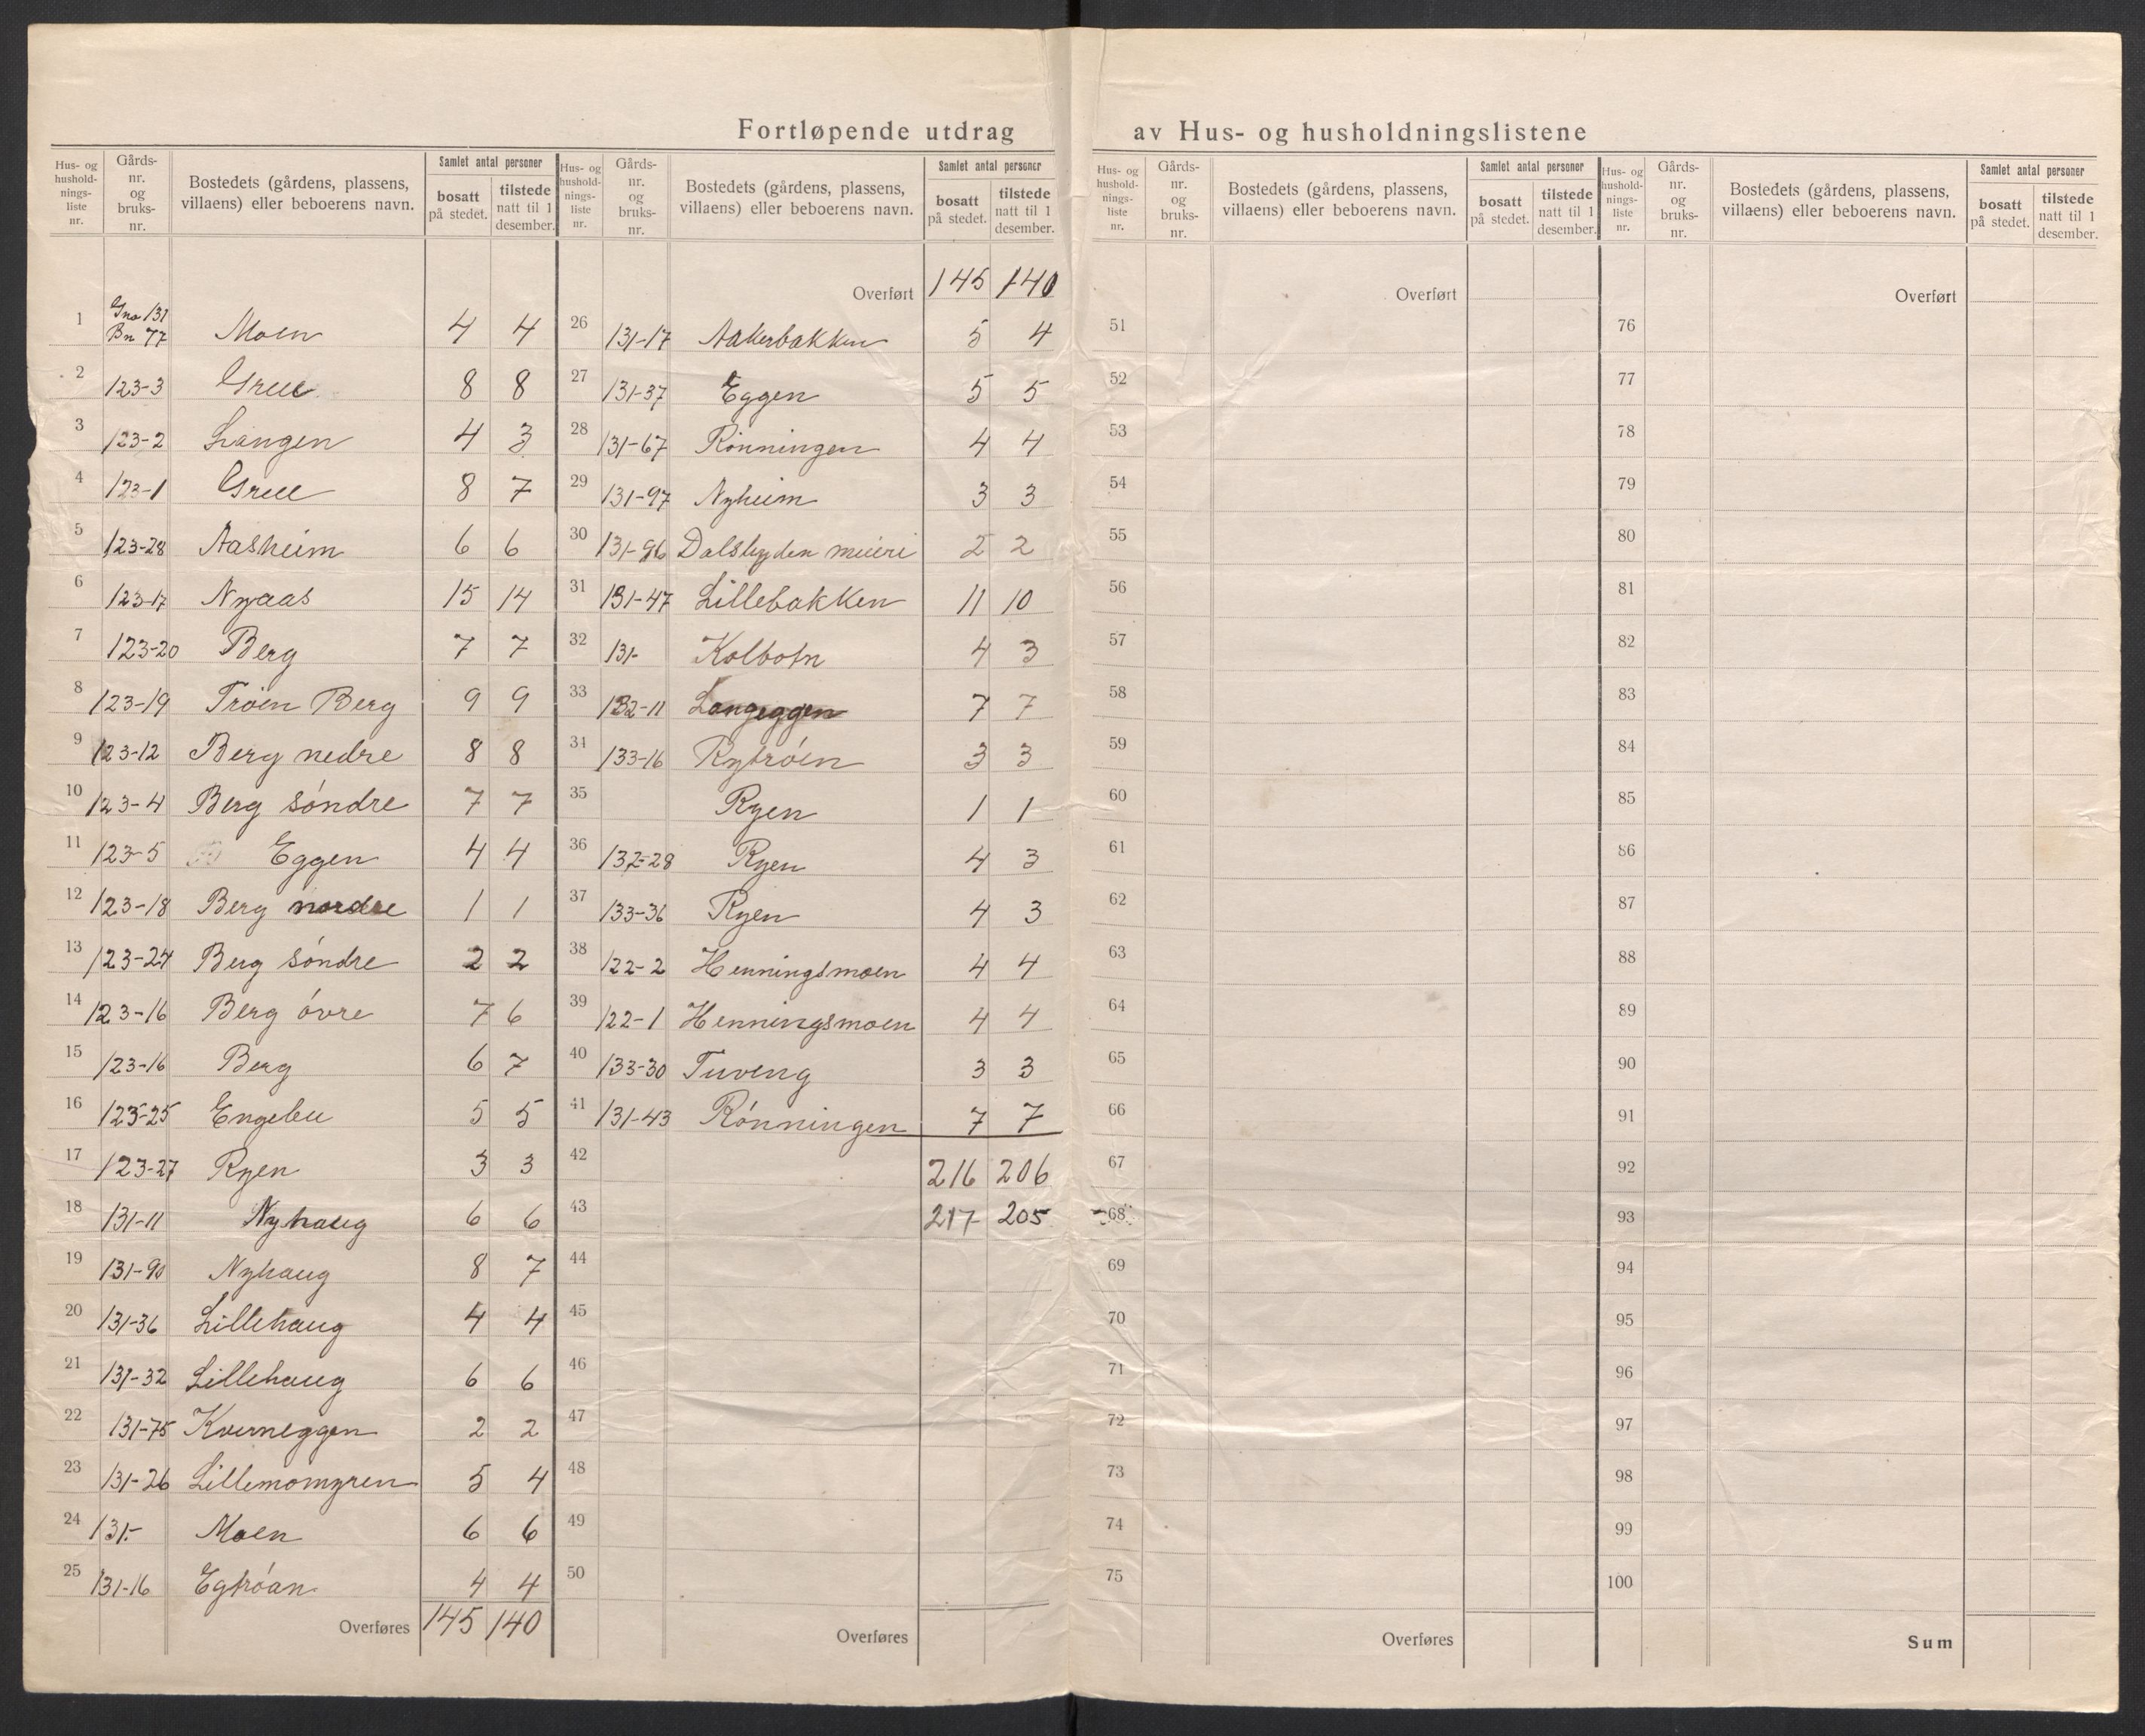 Fortløpende utdrag av Hus- og husholdningslistene
Hus- og husholdnings-liste nr. Gårds-nr. og bruks-nr. Bostedets (gårdens, plassens, villaens) eller beboerens navn. Samlet antal personer bosatt på stedet. tilstede natt til 1 desember.
1 Gno 131 Bn 77 Moen 4 4
2 123-3 Grue 8 8
3 123-2 Langen 4 3
4 123-1 Grue 8 7
5 123-28 Aasheim 6 6
6 123-17 Nyaas 15 14
7 123-20 Berg 7 7
8 123-19 Trøen Berg 9 9
9 123-12 Berg nedre 8 8
10 123-4 Berg søndre 7 7
11 123-5 Eggen 4 4
12 123-18 Berg nordre 1 1
13 123-24 Berg søndre 2 2
14 123-16 Berg øvre 7 6
15 123-16 Berg 6 7
16 123-25 Engebu 5 5
17 123-27 Ryen 3 3
18 131-11 Nyhaug 6 6
19 131-90 Nyhaug 8 7
20 131-36 Lillehaug 4 4
21 131-32 Lillehaug 6 6
22 131-75 Kverneggen 2 2
23 131-26 Lillemomyren 5 4
24 131- Moen 6 6
25 131-16 Egtrøan 4 4
Overføres 145 140
Hus- og husholdnings-liste nr. Gårds-nr. og bruks-nr. Bostedets (gårdens, plassens, villaens) eller beboerens navn. Samlet antal personer bosatt på stedet. tilstede natt til 1 desember.
Overført 145 140
26 131-17 Aakerbakken 5 4
27 131-37 Eggen 5 5
28 131-67 Rønningen 4 4
29 131-97 Nyheim 3 3
30 131-96 Dalsbygden meieri 2 2
31 131-47 Lillebakken 11 10
32 131- Kolbotn 4 3
33 132-11 Langeggen 7 7
34 133-16 Rytrøen 3 3
35 Ryen 1 1
36 132-28 Ryen 4 3
37 133-36 Ryen 4 3
38 122-2 Henningsmoen 4 4
39 122-1 Henningsmoen 4 4
40 133-30 Tuveng 3 3
41 131-43 Rønningen 7 7
42 216 206
43 217 205
44
45
46
47
48
49
50
Overføres
Hus- og husholdnings-liste nr. Gårds-nr. og bruks-nr. Bostedets (gårdens, plassens, villaens) eller beboerens navn. Samlet antal personer bosatt på stedet. tilstede natt til 1 desember.
Overført
51
52
53
54
55
56
57
58
59
60
61
62
63
64
65
66
67
68
69
70
71
72
73
74
75
Overføres
Hus- og husholdnings-liste nr. Gårds-nr. og bruks-nr. Bostedets (gårdens, plassens, villaens) eller beboerens navn. Samlet antal personer bosatt på stedet. tilstede natt til 1 desember.
Overført
76
77
78
79
80
81
82
83
84
85
86
87
88
89
90
91
92
93
94
95
96
97
98
99
100
Sum